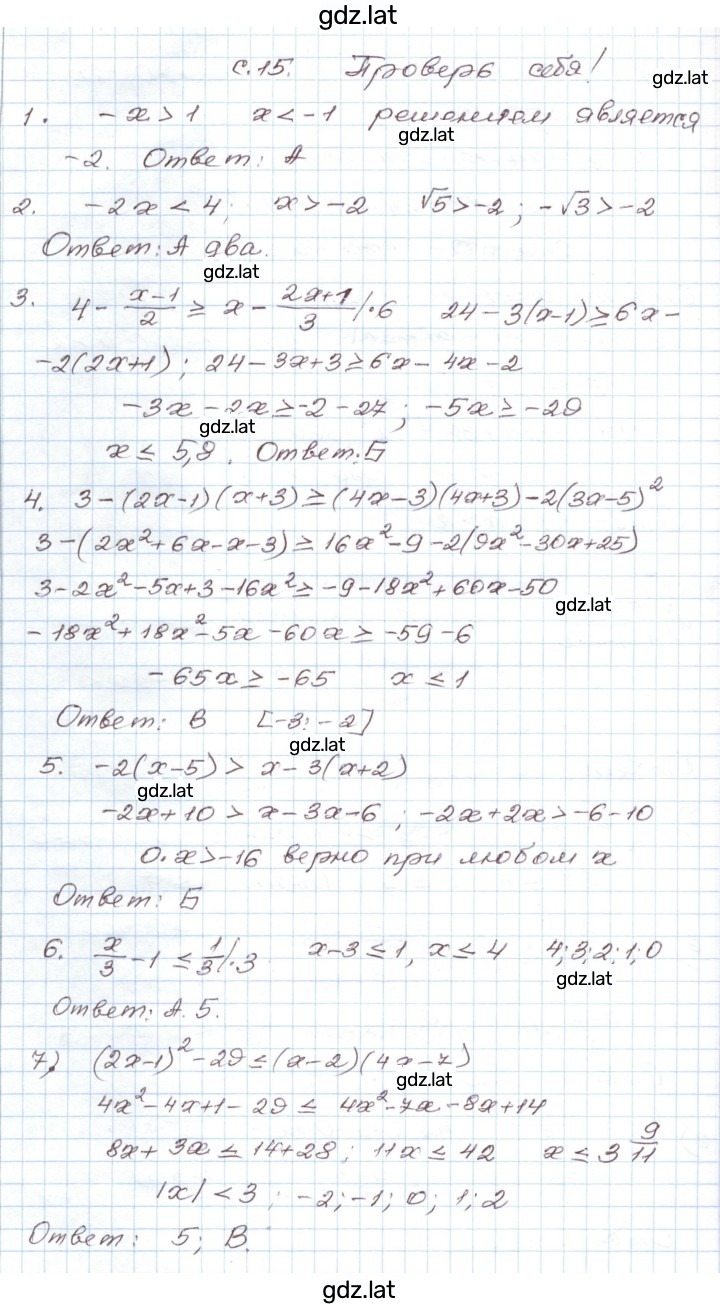 gdz.lat
с.15. Проверь себя!
gdz.lat
1. -x > 1 x < -1 решением является
gdz.lat
-2. Ответ: А
2. -2x < 4; x > -2 √5 > -2; -√3 > -2
Ответ: А два.
gdz.lat
3. 4 - (x-1)/2 ≥ x - (2x+1)/3 /·6 24 - 3(x-1) ≥ 6x -
-2(2x+1); 24 - 3x + 3 ≥ 6x - 4x - 2
-3x - 2x ≥ -2 - 27; -5x ≥ -29
gdz.lat
x ≤ 5,8. Ответ: Б
4. 3 - (2x-1)(x+3) ≥ (4x-3)(4x+3) - 2(3x-5)²
3 - (2x² + 6x - x - 3) ≥ 16x² - 9 - 2(9x² - 30x + 25)
3 - 2x² - 5x + 3 - 16x² ≥ -9 - 18x² + 60x - 50
gdz.lat
-18x² + 18x² - 5x - 60x ≥ -59 - 6
-65x ≥ -65 x ≤ 1
Ответ: В [-3; -2]
gdz.lat
5. -2(x-5) > x - 3(x+2)
gdz.lat
-2x + 10 > x - 3x - 6; -2x + 2x > -6 - 10
0·x > -16 верно при любом x
Ответ: Б
6. x/3 - 1 ≤ 1/3 /·3 x - 3 ≤ 1, x ≤ 4 4; 3; 2; 1; 0
gdz.lat
Ответ: А. 5.
7) (2x-1)² - 29 ≤ (x-2)(4x-7)
gdz.lat
4x² - 4x + 1 - 29 ≤ 4x² - 7x - 8x + 14
8x + 3x ≤ 14 + 28; 11x ≤ 42 x ≤ 3 9/11
|x| < 3; -2; -1; 0; 1; 2
Ответ: 5; В.
gdz.lat